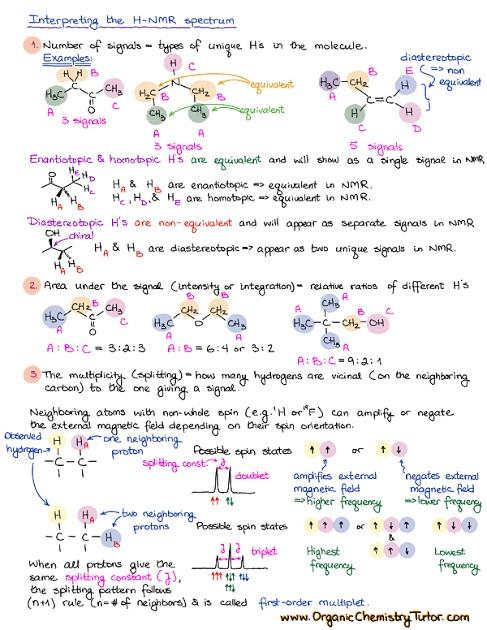 Interpreting the H-NMR spectrum
1. Number of signals = types of unique H's in the molecule.
Examples:
H H B
H₃C CH₃
A O C
3 signals
H C
N
B CH₂ CH₂ B
CH₃ CH₃
A A
equivalent
equivalent
3 signals
A B E
H₃C CH₂ H
H H
C D
5 signals
diastereotopic
=> non
equivalent
Enantiotopic & homotopic H's are equivalent and will show as a single signal in NMR
O HE HD HC
HA HB
HA & HB are enantiotopic => equivalent in NMR.
HC, HD, & HE are homotopic => equivalent in NMR.
Diastereotopic H's are non-equivalent and will appear as separate signals in NMR
OH chiral
HA HB
HA & HB are diastereotopic => appear as two unique signals in NMR.
2. Area under the signal (intensity or integration) = relative ratios of different H's
B C
H₃C CH₂ CH₃
A O
A:B:C = 3:2:3
B B
CH₂ CH₂
H₃C O CH₃
A A
A:B = 6:4 or 3:2
A
CH₃ B C
H₃C-C-CH₂-OH
A CH₃
A
A:B:C = 9:2:1
3. The multiplicity (splitting) = how many hydrogens are vicinal (on the neighboring
carbon) to the one giving a signal.
Neighboring atoms with non-whole spin (e.g. ¹H or ¹⁹F) can amplify or negate
the external magnetic field depending on their spin orientation.
Observed
hydrogen
H HA
-C-C-
one neighboring
proton
splitting const. J
doublet
↑↑ ↑↓
Possible spin states
↑ ↑ or ↑ ↓
amplifies external
magnetic field
=> higher frequency
negates external
magnetic field
=> lower frequency
H HA
-C-C-HB
two neighboring
protons
J J
triplet
Possible spin states
↑ ↑ ↑ or ↑ ↓ ↑ ↑ ↓ ↓
&
↑ ↑ ↓
Highest
frequency
Lowest
frequency
When all protons give the
same splitting constant (J),
the splitting pattern follows
(n+1) rule (n=# of neighbors) & is called first-order multiplet.
www.OrganicChemistryTutor.com